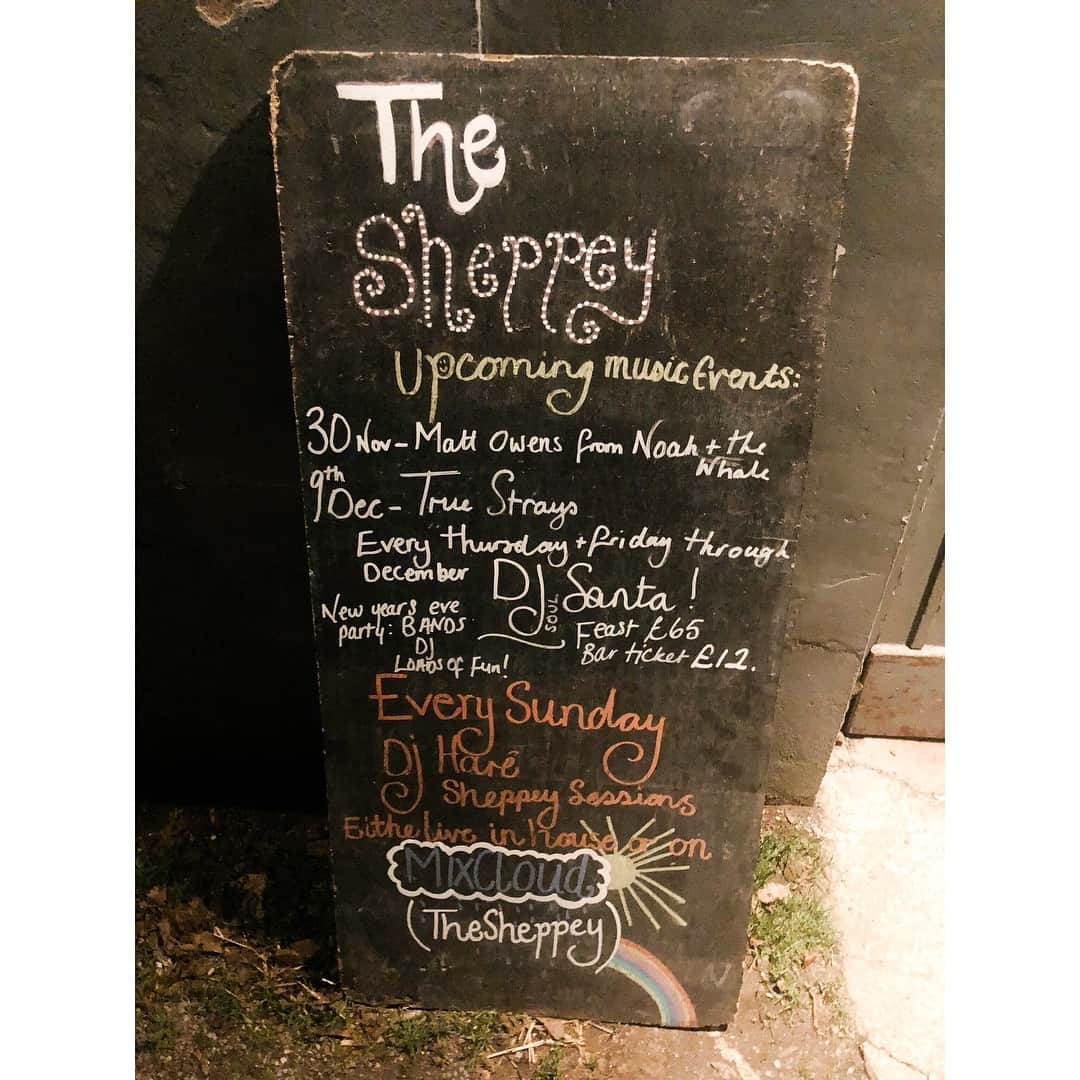 The
Sheppey
Upcoming music Events:
30 Nov - Matt Owens from Noah + the
Whale
9th Dec - True Strays
Every thursday + friday through
December DJ SOUL Santa!
New years eve
party: BANDS
DJ
LOADS OF Fun!
Feast £65
Bar ticket £12.
Every Sunday
Dj Harê
Sheppey Sessions
Eithe live in house or on
MixCloud
(TheSheppey)